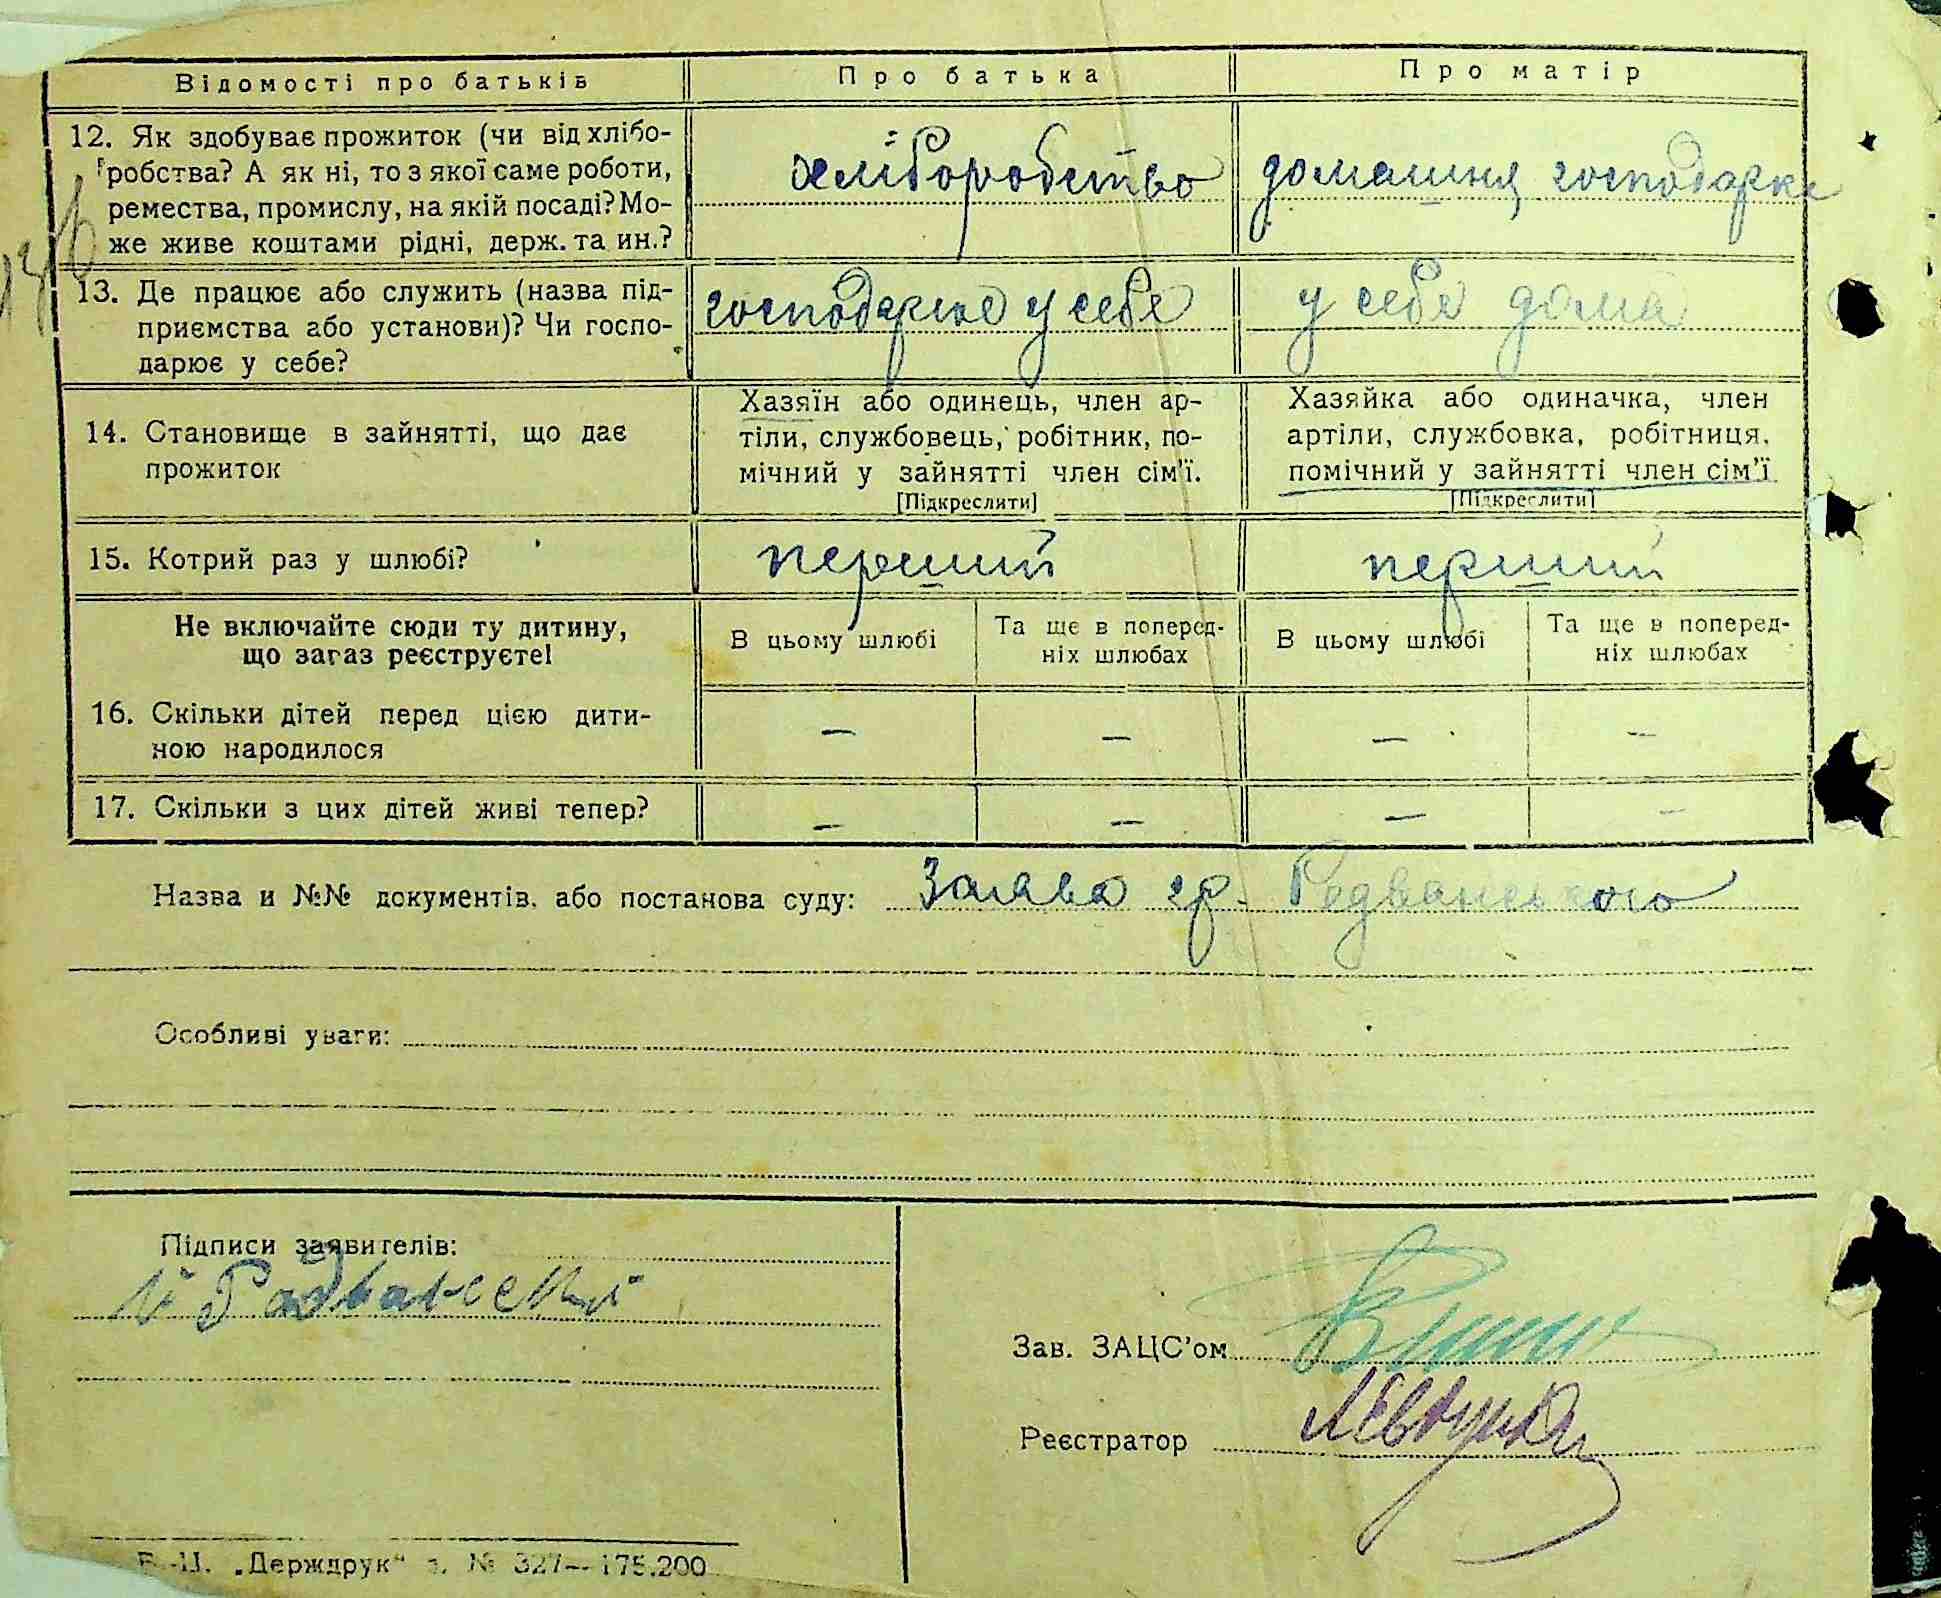 Відомості про батьків
Про батька
Про матір
12. Як здобуває прожиток (чи від хлібо-
робства? А як ні, то з якої саме роботи,
ремества, промислу, на якій посаді? Мо-
же живе коштами рідні, держ. та ин.?
хліборобство
домашня господарка
13. Де працює або служить (назва під-
приємства або установи)? Чи госпо-
дарює у себе?
господарює у себе
у себе дома
14. Становище в зайнятті, що дає
прожиток
Хазяїн або одинець, член ар-
тіли, службовець, робітник, по-
мічний у зайнятті член сім'ї.
[Підкреслити]
Хазяйка або одиначка, член
артіли, службовка, робітниця,
помічний у зайнятті член сім'ї
[Підкреслити]
15. Котрий раз у шлюбі?
перший
перший
Не включайте сюди ту дитину,
що зараз реєструєте!
В цьому шлюбі
Та ще в поперед-
ніх шлюбах
В цьому шлюбі
Та ще в поперед-
ніх шлюбах
16. Скільки дітей перед цією дити-
ною народилося
— — — —
17. Скільки з цих дітей живі тепер?
— — — —
Назва и №№ документів, або постанова суду: Заява гр. Редванського
Особливі уваги:
Підписи заявителів:
Радванский
Зав. ЗАЦС'ом
Реєстратор
„Держдрук“ з. № 327—175.200